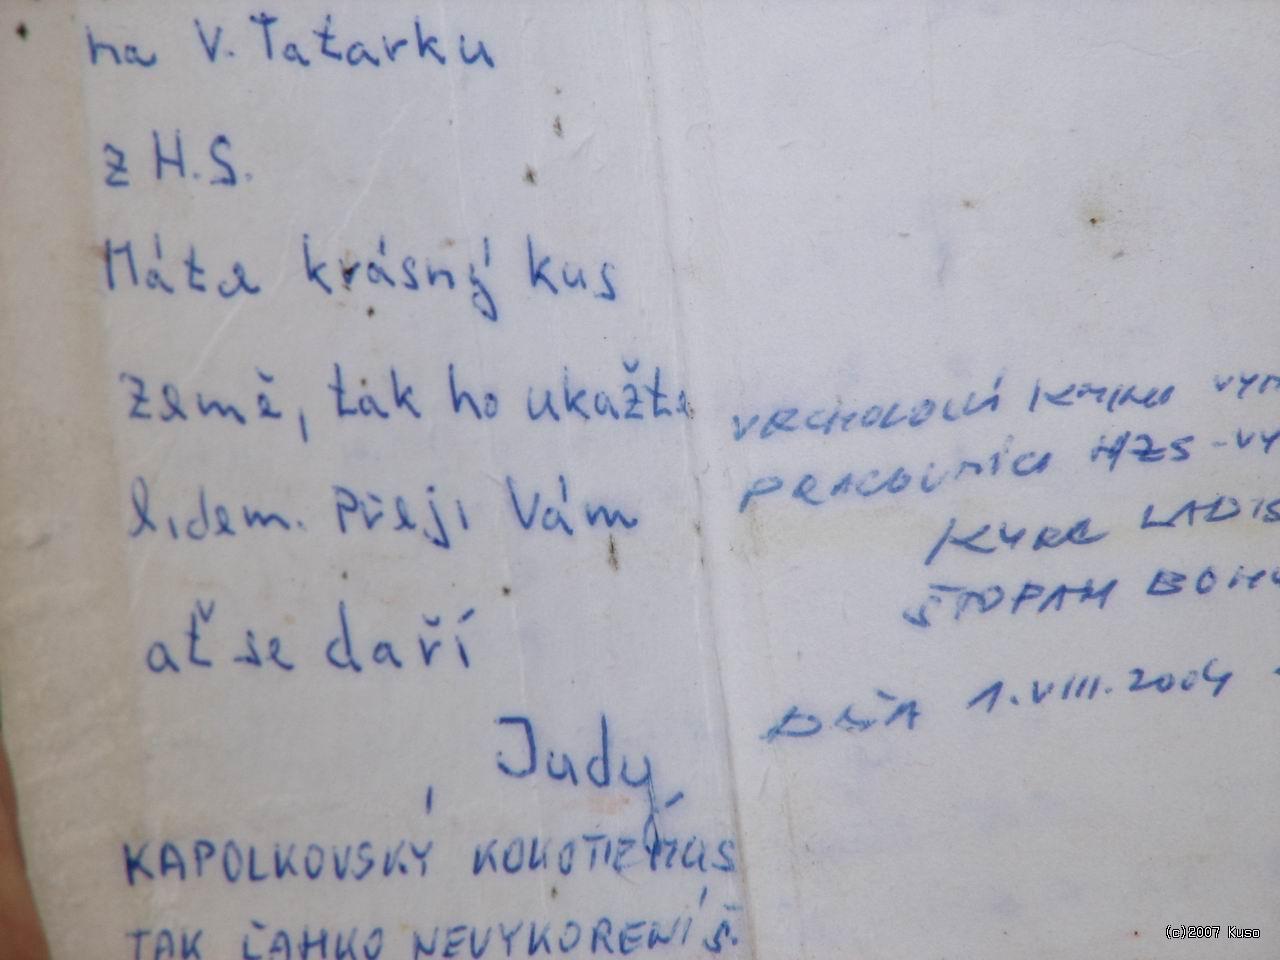 na V. Tatarku
z H.S.
Máte krásný kus
země, tak ho ukažte
lidem. Přeji Vám
ať se daří
Judy
KAPOLKOVSKÝ KOKOTIZMUS
TAK ĽAHKO NEVYKORENÍŠ.
VRCHOLOVÚ KNIHU VYM
PRACOVNÍCI HZS-VY
LADIS
ŠTOPAN BOHU
DŇA 1.VIII.2004
(c)2007 Kuso